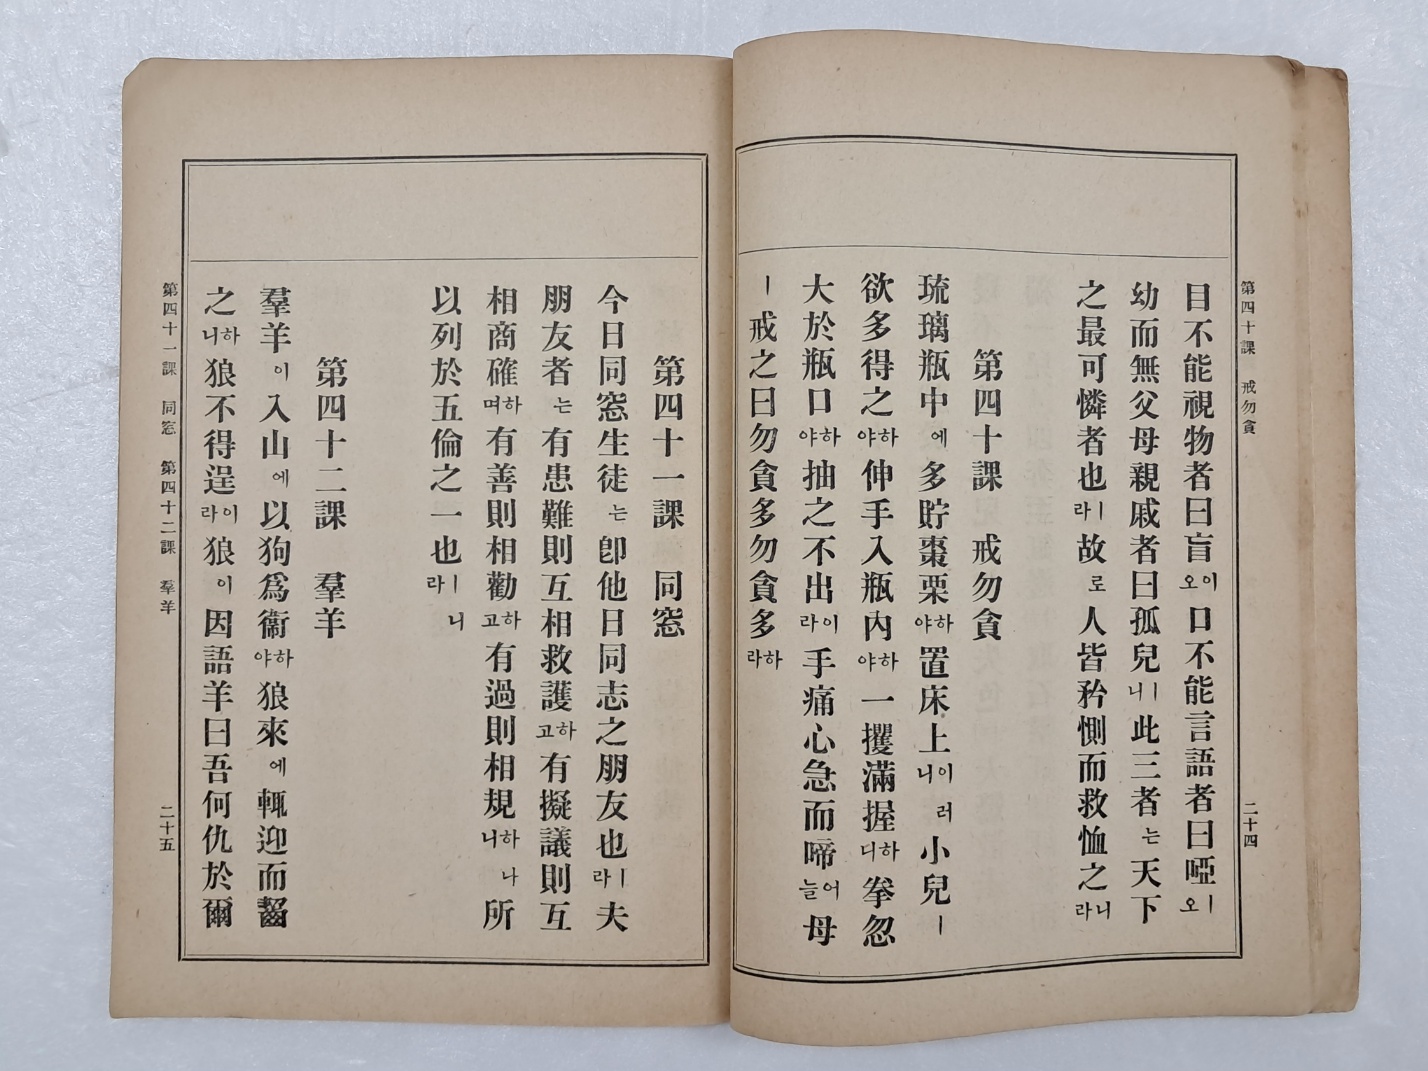 第四十課 戒勿貪
二十四
目不能視物者曰盲이오口不能言語者曰啞ㅣ오
幼而無父母親戚者曰孤兒ㅣ니此三者는天下
之最可憐者也ㅣ라故로人皆矜惻而救恤之니라
第四十課 戒勿貪
琉璃瓶中에多貯棗栗하야置床上이니러小兒ㅣ
欲多得之하야伸手入瓶內하야一攫滿握하니拳忽
大於瓶口하야抽之不出이라手痛心急而啼어늘母
ㅣ戒之曰勿貪多勿貪多하라
第四十一課 同窓
今日同窓生徒는卽他日同志之朋友也ㅣ라夫
朋友者는有患難則互相救護하고有擬議則互
相商確하며有善則相勸하고有過則相規하니나所
以列於五倫之一也ㅣ라니
第四十二課 羣羊
羣羊이入山에以狗爲衞하야狼來에輒迎而齧
之하니狼不得逞이라狼이因語羊曰吾何仇於爾
第四十一課 同窓 第四十二課 羣羊
二十五